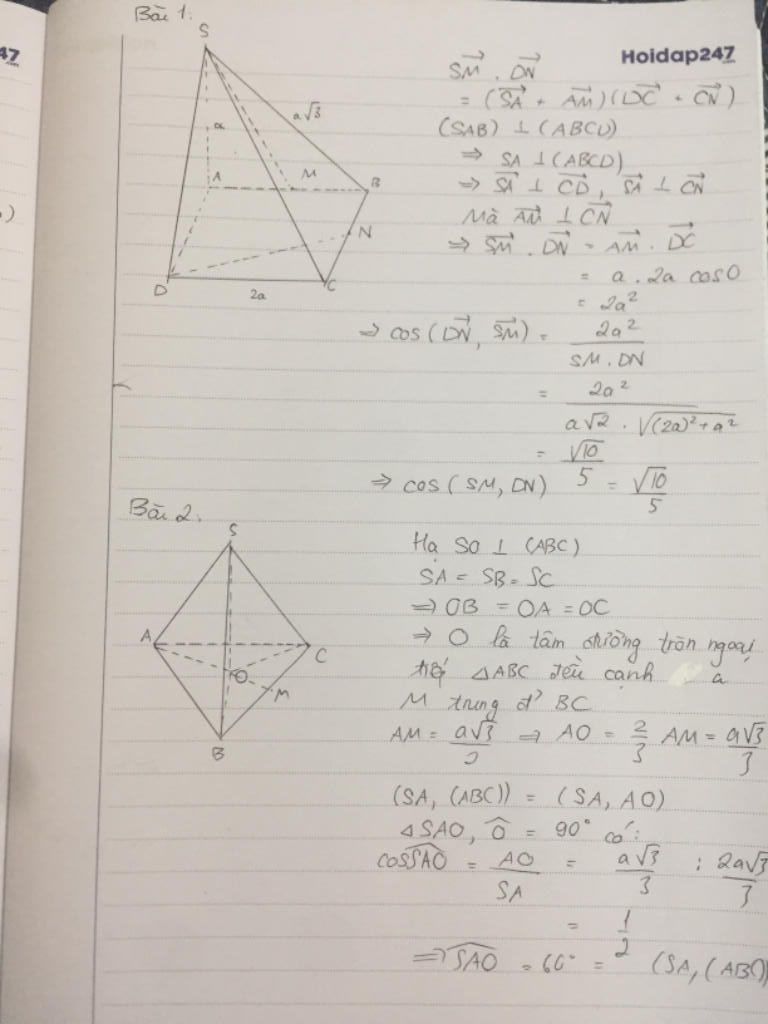 Bài 1:
247
.com
Hoidap247
.com
S
a√3
a
A
M
B
N
D
2a
C
SM . DN
= (SA + AM)(DC + CN)
(SAB) ⊥ (ABCD)
⇒ SA ⊥ (ABCD)
⇒ SA ⊥ CD, SA ⊥ CN
Mà AM ⊥ CN
⇒ SM . DN = AM . DC
= a . 2a cos0
= 2a²
⇒ cos(DN, SM) = 2a² / SM.DN
= 2a² / a√2 . √(2a)²+a²
= √10 / 5
⇒ cos(SM, DN) = √10 / 5
Bài 2:
S
A
C
O
M
B
Hạ SO ⊥ (ABC)
SA = SB = SC
⇒ OB = OA = OC
⇒ O là tâm đường tròn ngoại
tiếp △ABC đều cạnh a
M trung đ' BC
AM = a√3 / 2 ⇒ AO = 2/3 AM = a√3 / 3
(SA, (ABC)) = (SA, AO)
△SAO, Ô = 90° có:
cosSAO = AO / SA = a√3 / 3 : 2a√3 / 3
= 1 / 2
⇒ SAO = 60° = (SA, (ABC)